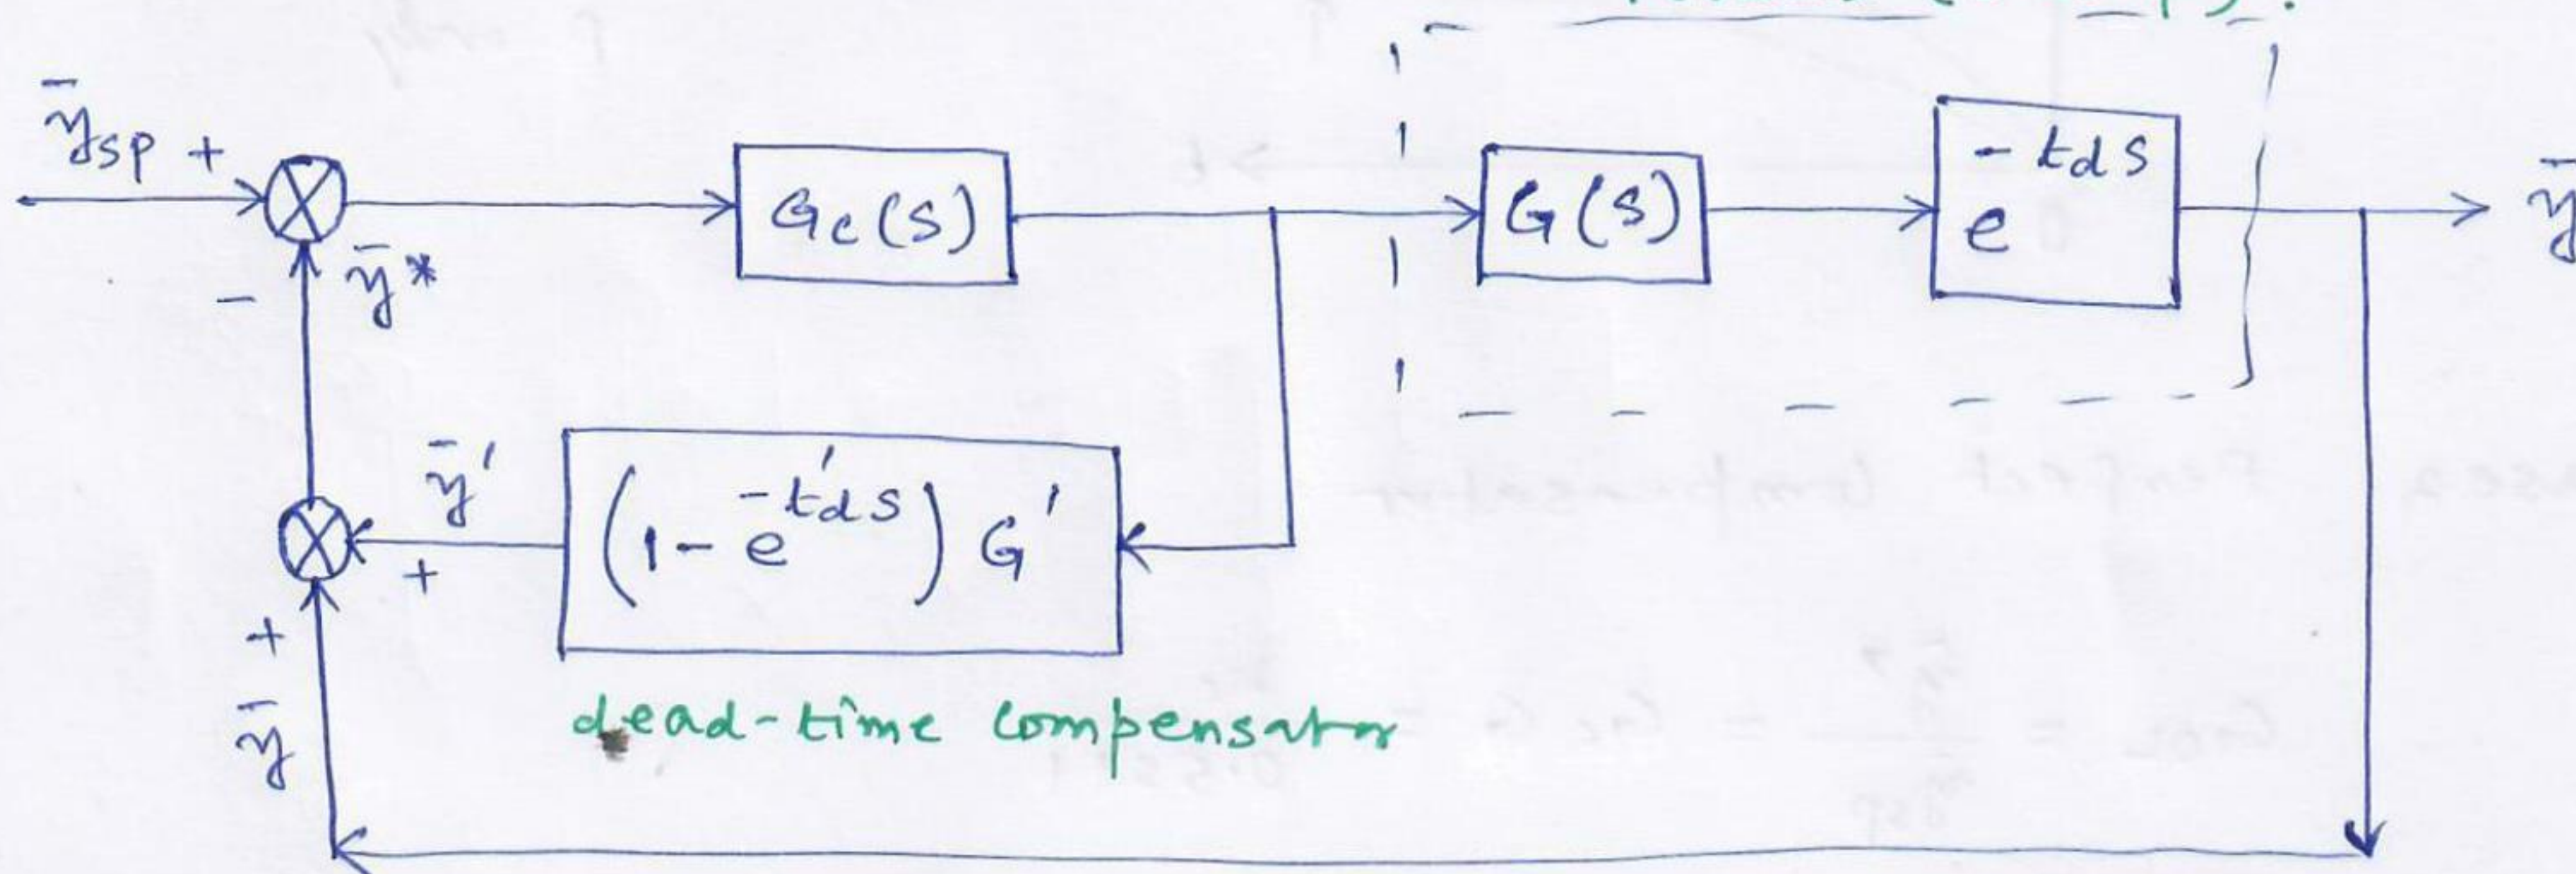 ȳsp +
Gc(s)
G(s)
e^(-tds)
ȳ
-
ȳ*
ȳ'
+
(1 - e^(-t'ds)) G'
+
ȳ
dead-time compensator